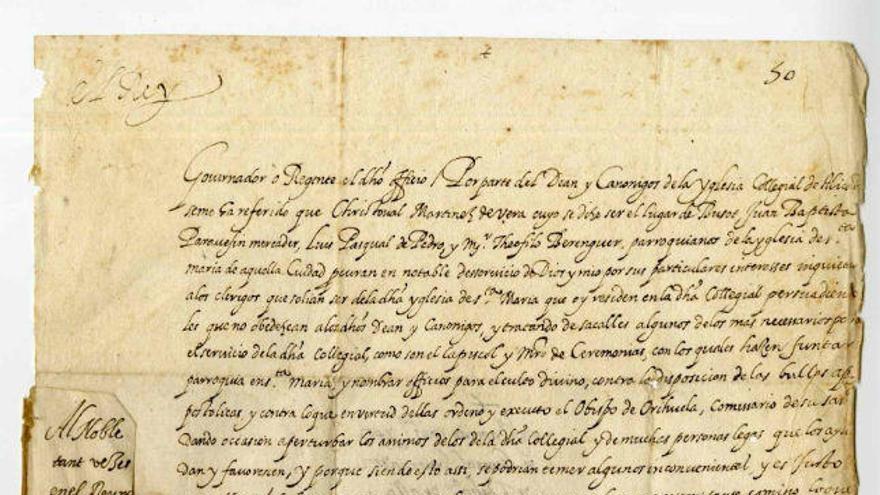 50
El Rey
Governador ò Regente el dhõ officio / Por parte del Dean y Canonigos de la Yglesia Collegial de Alicante
se me ha referido que Christoual Martinez de Vera cuyo se dize ser el lugar de Busot, Juan Baptista
Parauesin mercader, Luis Pasqual de Pedro, y Mr. Theofilo Berenguer, parroquianos de la yglesia de sta
maria de aquella Ciudad en notable desseruicio de Dios y mio por sus particulares interesses inquietan
a los clerigos que solian ser de la dhã yglesia de sta Maria que oy residen en la dhã Collegial persuadien
les que no obedezcan a los dhõs Dean y Canonigos, y tratando de sacalles algunos de los mas necessarios para
el seruicio de la dhã Collegial, como son el Capiscol y Mro de Ceremonias, con los quales hazen juntar
parroquia en sta Maria, y nombrar officios para el culto diuino, contra la disposicion de las bullas ap
postolicas y contra lo que en vertud dellas ordeno y executo el Obispo de Orihuela, Comissario de su San
dando occasion a perturbar los animos de los de la dhã Collegial y de muchas personas legas que los ayu
dan y fauorecen, y porque siendo esto assi, se podrian temer algunos inconvenientes y es justo
Al Noble
tant vezes
en el Reyno